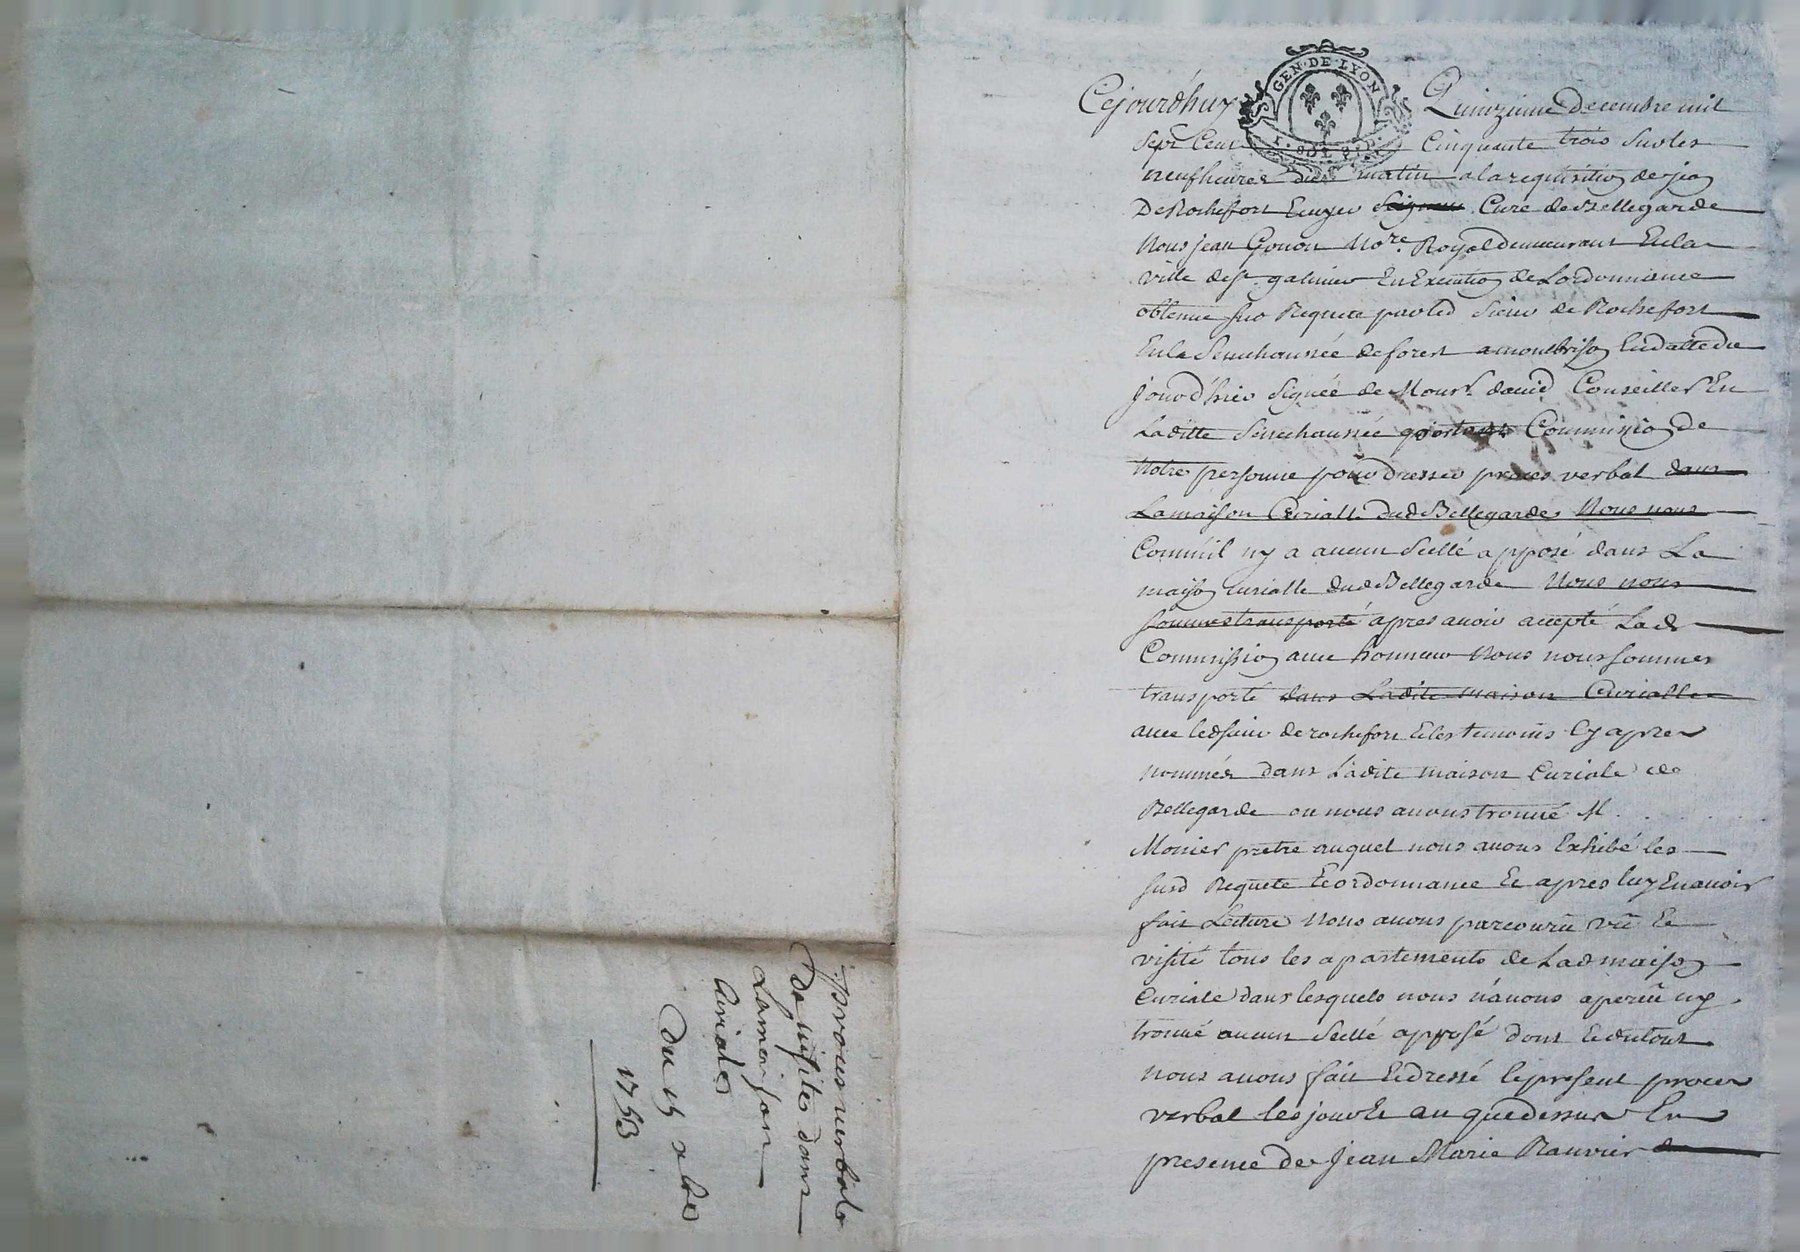 GEN·DE·LYON
Cejourd'huy Quinzieme decembre mil
sept Cent Cinquante trois sur les
neuf heures du matin a la requisition de jean
De Rochefort Ecuyer Seigneur Curé de Bellegarde
Nous jean Gonon No.re Royal demeurant En la
ville de st. galmier En Execution de Lordonnance
obtenue sur Requete par led Sieur de Rochefort
En la Senechaussée de forest a montbrison En datte du
jour d'hier Signée de Monsr. david Conseiller En
Laditte Senechaussée portant Commission de
Notre personne pour dresser proces verbal dans
La maison Curialle dud Bellegarde Nous nous
Comm'il ny a aucun Scellé apposé dans La
maison Curialle dud Bellegarde Nous nous
sommes transporté apres auoir accepté Lad
Commission auec honneur Nous nous sommes
transporté dans Ladite maison Curialle
auec led sieur de rochefort Et les temoins Cy apres
nommés dans Ladite maison Curiale de
Bellegarde ou nous auons trouué M. . . . .
Monier pretre auquel nous auons Exhibé les
susd Requete Et ordonnance Et apres luy En auoir
fait Lecture Nous auons parcouru vü Et
visité tous les apartements de Lad maison
Curiale dans lesquels nous n'auons aperçu ny
trouué aucun Scellé apposé dont Et du tout
nous auons fait Et dressé le present proces
verbal les jour Et an que dessus En
presence de Jean Marie Rauvier de
procés uerbal
De uisite dans
La maison
Curiale
Du 15 xbre
1753